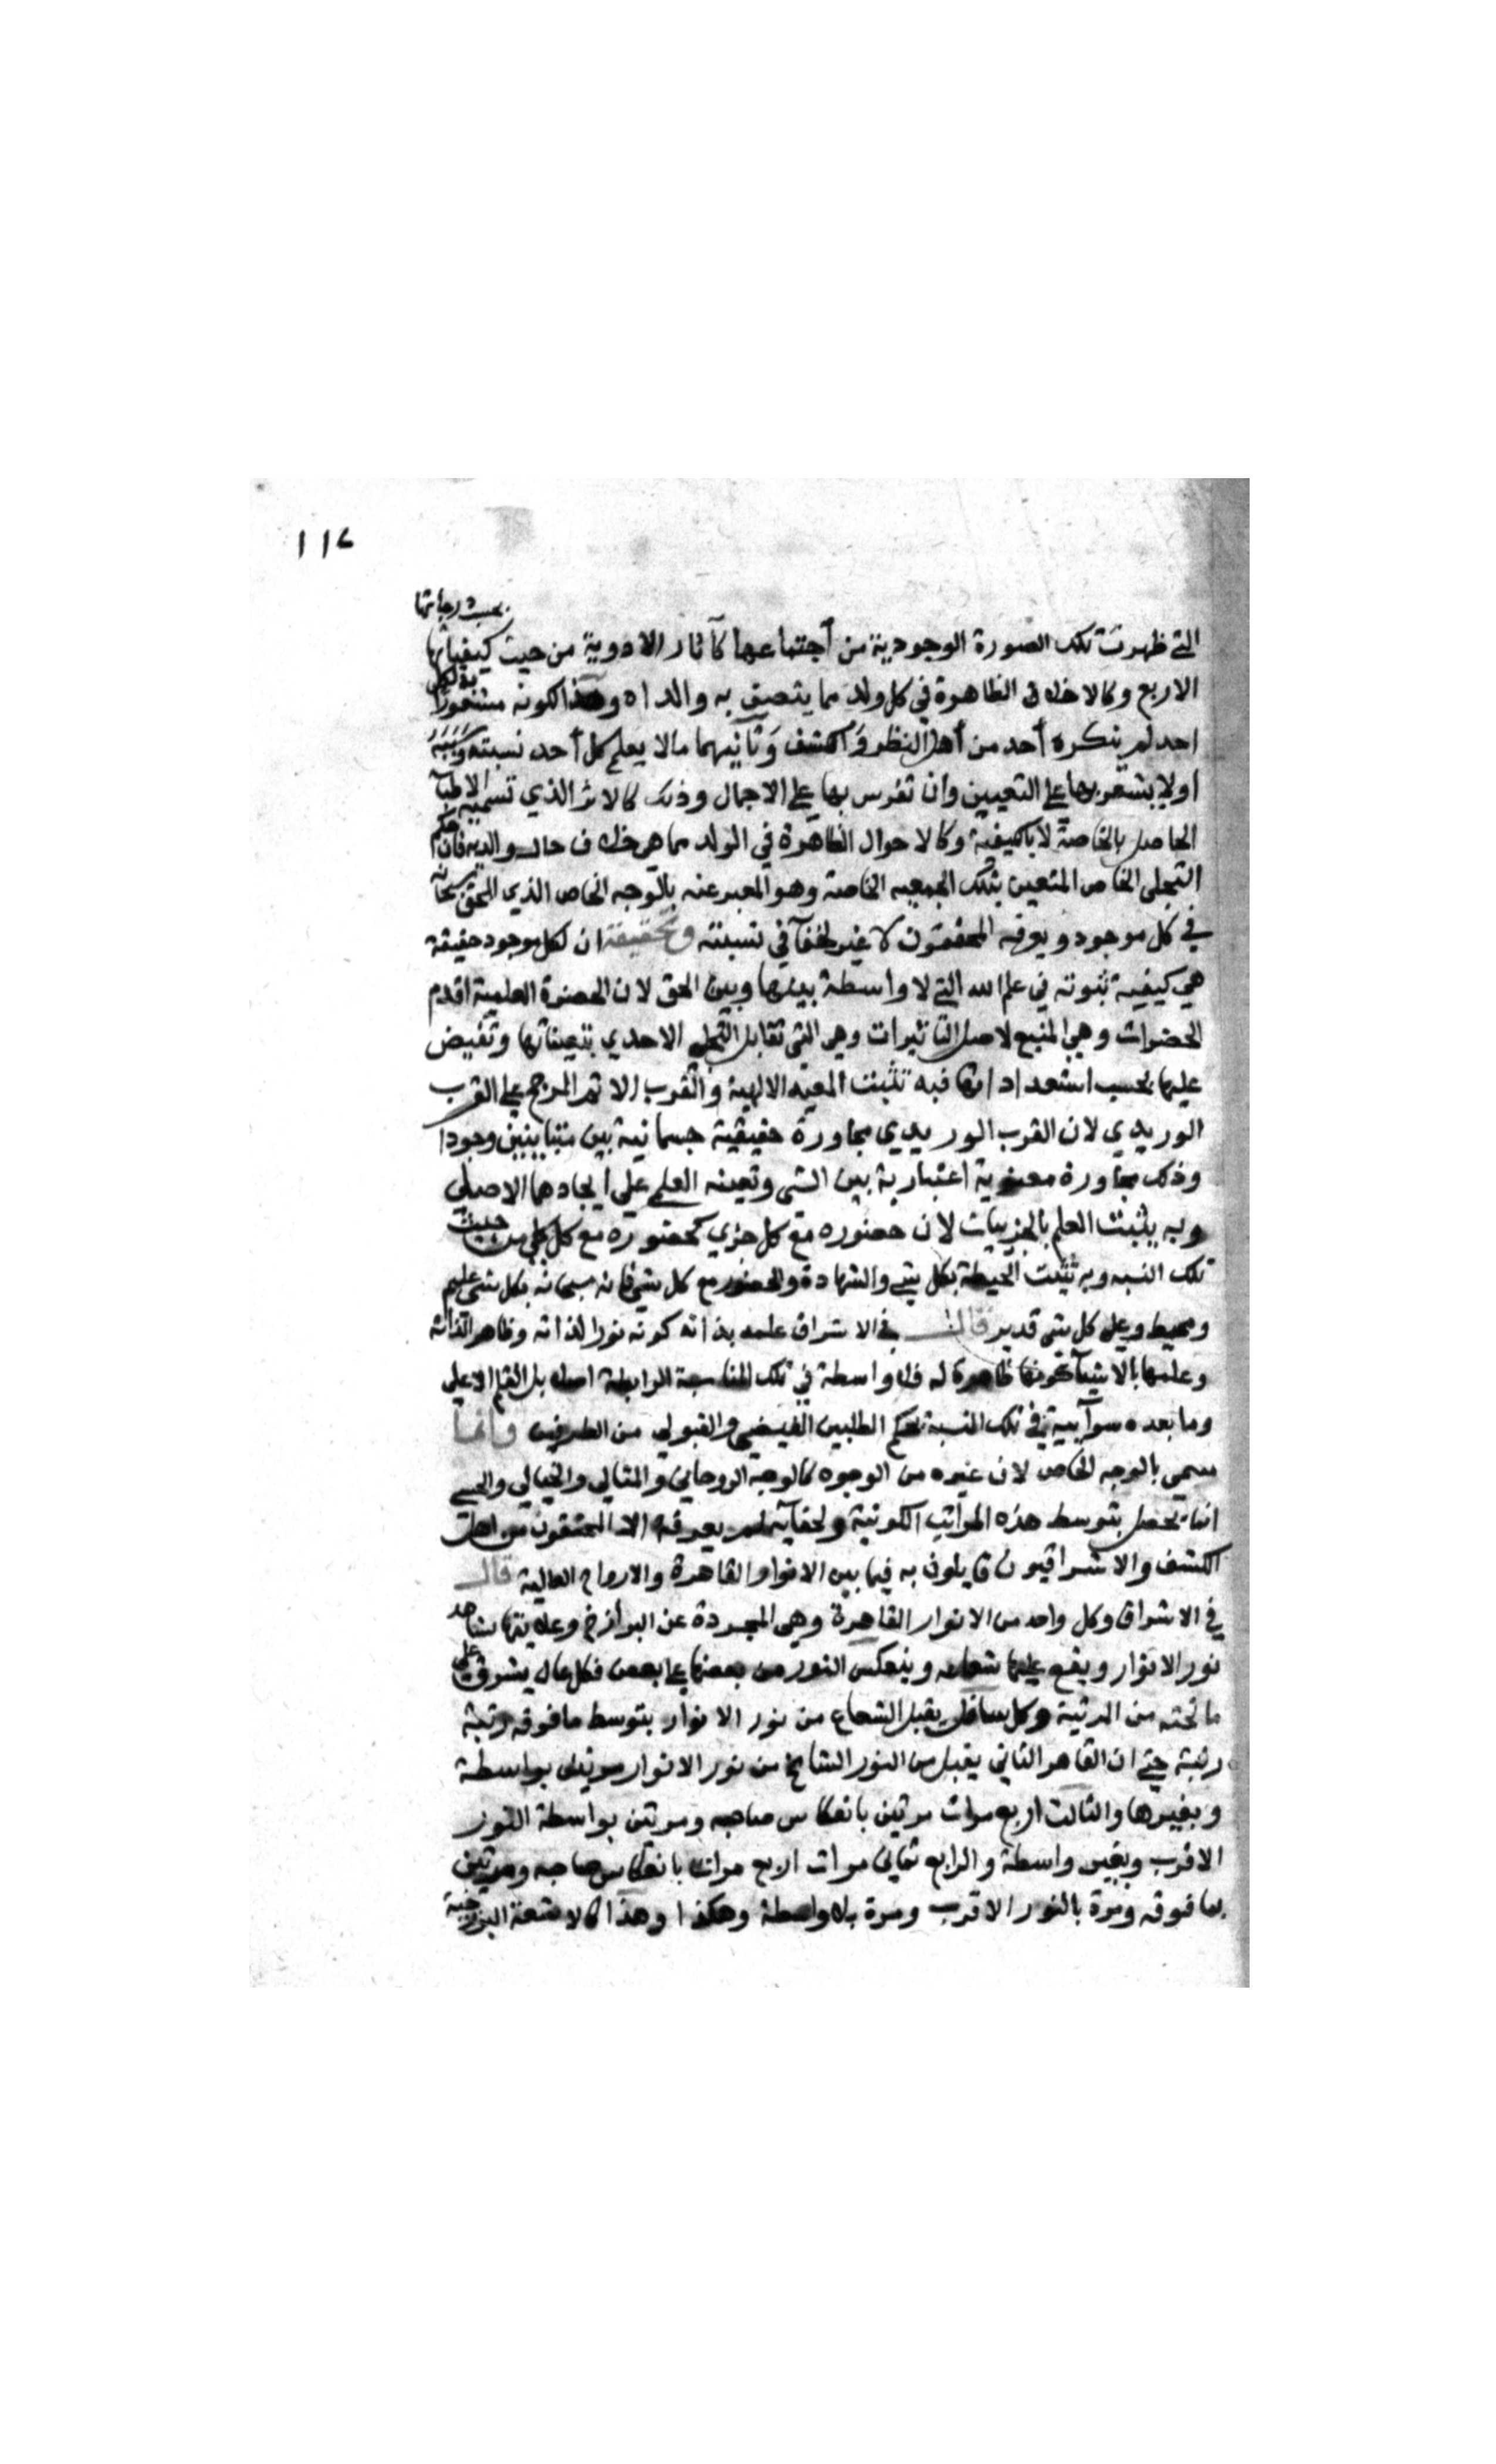 ١١٤
بحسب درجاتها
التي ظهرت تلك الصورة الوجودية من أجتماعها كآثار الادوية من حيث كيفياتها
الاربع وكالاخلاق الظاهرة في كل ولد مما يتصف به والداه وهذا لكونه مشعورا به لكل
احد لم ينكره أحد من أهل النظر والكشف وثانيهما مالا يعلم كل أحد نسبته وسببه
اولا يشعر بها على التعيين وان تفرس بها على الاجمال وذلك كالاثر الذي تسميه الاطبآ
الحاصل بالخاصة لا بالكيفية وكالاحوال الظاهرة في الولد مما هي خلاف حال والديه فان حكم
التجلى الخاص المتعين بتلك الجمعيه الخاصة وهو المعبر عنه بالوجه الخاص الذي للحق سبحانه
في كل موجود ويعرفه المحققون لا غير لخفآ في نسبته وتحقيقه ان لكل موجود حقيقة
هي كيفية ثبوته في علم الله التي لا واسطة بينها وبين الحق لان الحضرة العلمية اقدم
الحضرات وهي المنبع لاصل التاثيرات وهي التي تقابل التجلي الاحدي بتعيناتها وتفيض
عليها بحسب استعداداتها فبه تثبت المعيه الالهية والقرب الاتم المرجح على القرب
الوريدي لان القرب الوريدي مجاورة حقيقية جسمانية بين متباينين وجودا
وذلك مجاورة معنوية اعتبارية بين الشي وتعينه العلمي على ايجادهما الاصلي
وبه يثبت العلم بالجزييات لان حضوره مع كل جزي كحضوره مع كل كلي من حيث
تلك النسبه وبه تثبت الحيطة بكل شي والشهادة والحضور مع كل شي فانه سبحانه بكل شي عليم
ومحيط وعلى كل شي قدير قال في الاشراق علمه بذاته كونه نورا لذاته وظاهرا لذاته
وعلمه بالاشيآ كونها ظاهرة له فلا واسطة في تلك المناسبة الرابطة اصلا بل القلم الاعلى
وما بعده سوآسية في تلك النسبة بحكم الطلبين الفيضي والقبولي من الطرفين وانما
سمي بالوجه الخاص لان غيره من الوجوه كالوجه الروحاني والمثالي والخيالي والحسي
انما يحصل بتوسط هذه المراتب الكونية ولخفآيه لم يعرفه الا المحققون من اهل
الكشف والاشراقيون قايلون به فيما بين الانوار القاهرة والارواح العالية قال
في الاشراق وكل واحد من الانوار القاهرة وهي المجردة عن البرازخ وعلايقها يشاهد
نور الانوار ويقع عليها شعاعه وينعكس النور من بعضها على بعض فكل عال يشرق على
ما تحته من المرتبة وكل سافل يقبل الشعاع من نور الانوار بتوسط ما فوقه رتبة
رتبة حتى ان القاهر الثاني يقبل من النور السانح من نور الانوار مرتين بواسطة
وبغيرها والثالث اربع مرات مرتين بانعكاس صاحبه ومرتين بواسطة النور
الاقرب وبغير واسطة والرابع ثماني مرات اربع مرات بانعكاس صاحبه ومرتين
بما فوقه ومرة بالنور الاقرب ومرة بلا واسطة وهكذا وهذا كالاشعة البرزخية